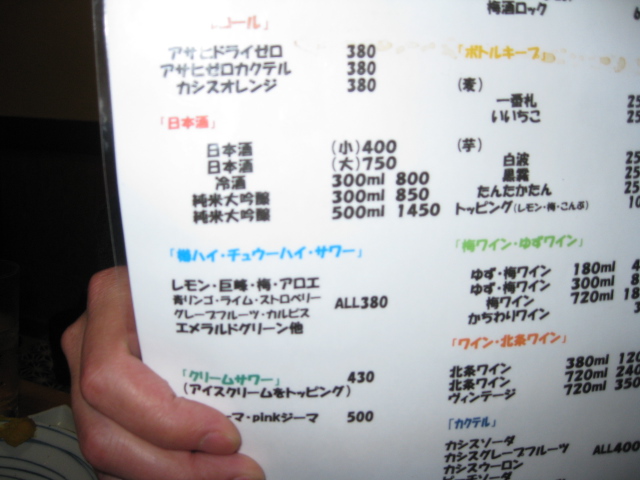 コール」
アサヒドライゼロ 380
アサヒゼロカクテル 380
カシスオレンジ 380
「日本酒」
日本酒 (小)400
日本酒 (大)750
冷酒 300ml 800
純米大吟醸 300ml 850
純米大吟醸 500ml 1450
「酎ハイ・チュウーハイ・サワー」
レモン・巨峰・梅・アロエ
青リンゴ・ライム・ストロベリー
グレープフルーツ・カルピス
エメラルドグリーン他
ALL380
「クリームサワー」 430
(アイスクリームをトッピング)
ーマ・pinkジーマ 500
梅酒ロック
「ボトルキープ」
(麦)
一番札 25
いいちこ 25
(芋)
白波 25
黒霧 25
たんたかたん 25
トッピング(レモン・梅・こんぶ) 10
「梅ワイン・ゆずワイン」
ゆず・梅ワイン 180ml 4
ゆず・梅ワイン 300ml 8
梅ワイン 720ml 18
かちわりワイン 3
「ワイン・北条ワイン」
北条ワイン 380ml 120
北条ワイン 720ml 240
ヴィンテージ 720ml 350
「カクテル」
カシスソーダ
カシスグレープフルーツ ALL400
カシスウーロン
ピーチソーダ